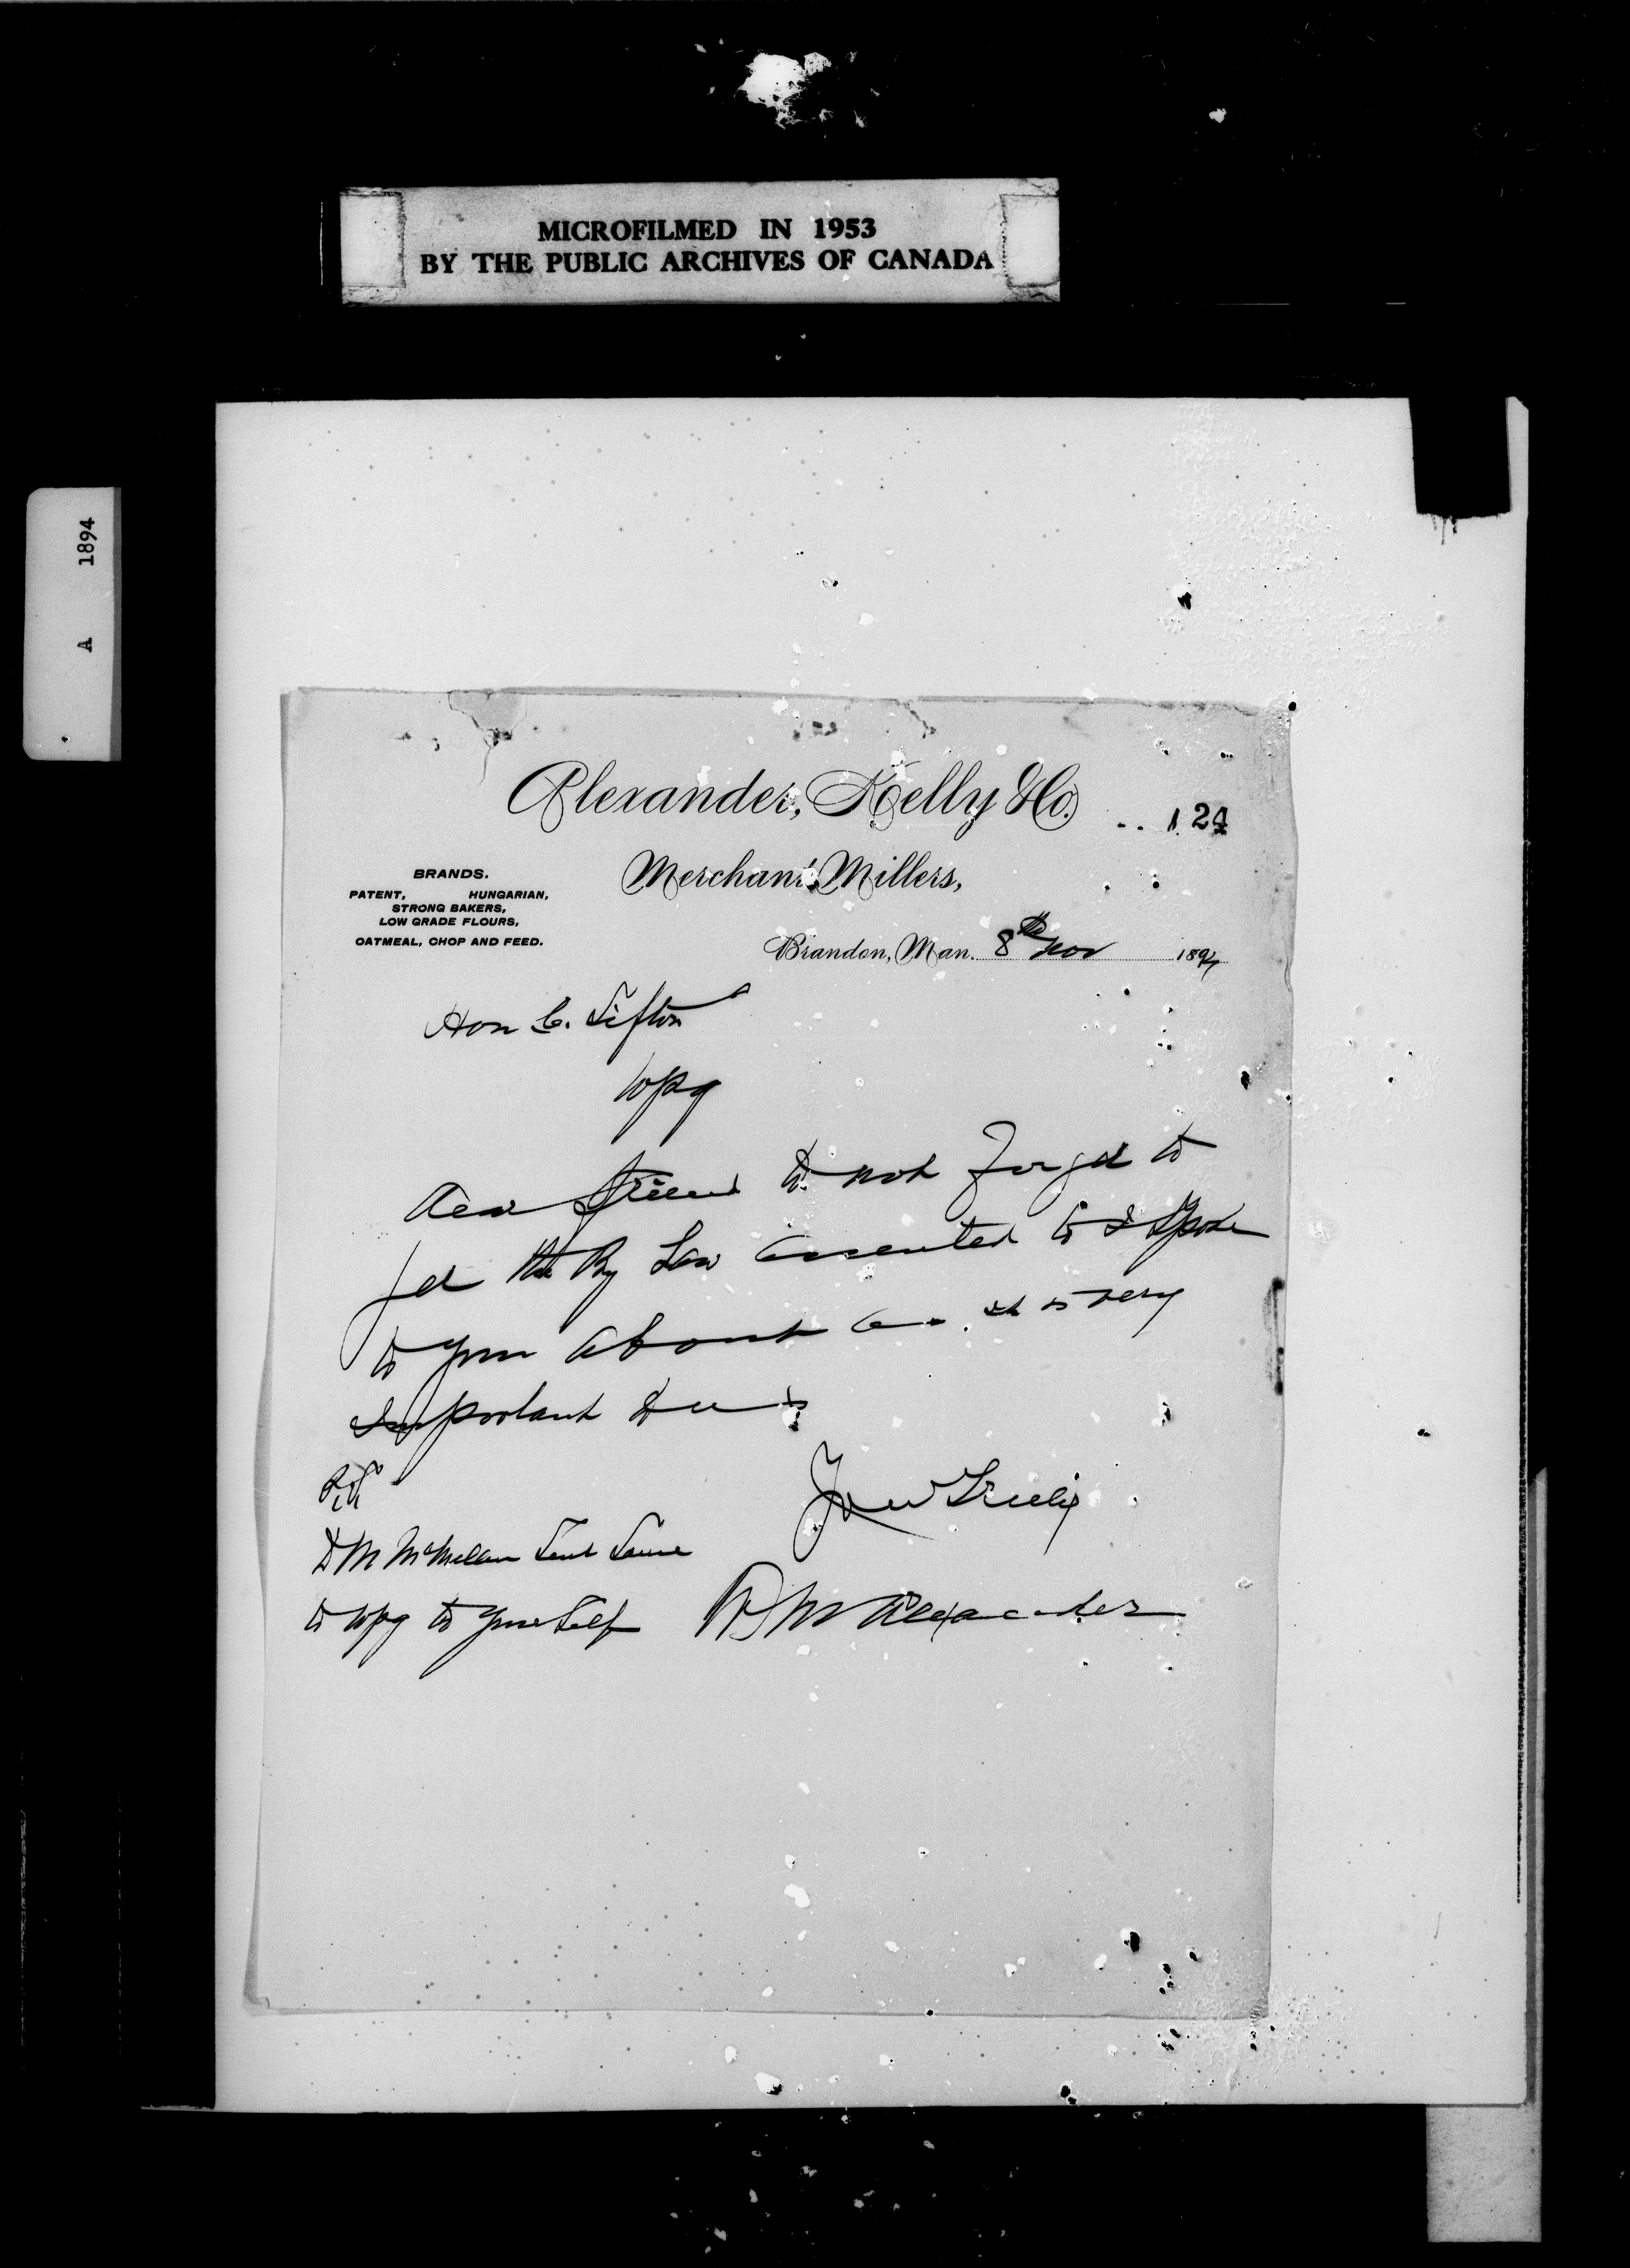 MICROFILMED IN 1953
BY THE PUBLIC ARCHIVES OF CANADA
A 1894
Alexander, Kelly & Co.
124
Merchant Millers,
BRANDS.
PATENT, HUNGARIAN,
STRONG BAKERS,
LOW GRADE FLOURS,
OATMEAL, CHOP AND FEED.
Brandon, Man. 8th Nov 1894
Hon C. Sifton
Wpg
Dear Friend do not forget to
get the By Law assented to I Spoke
to you about as it is very
Important to us
Yours Truly
D M McMelan Sent Same
to Wpg to yourself
Alexander